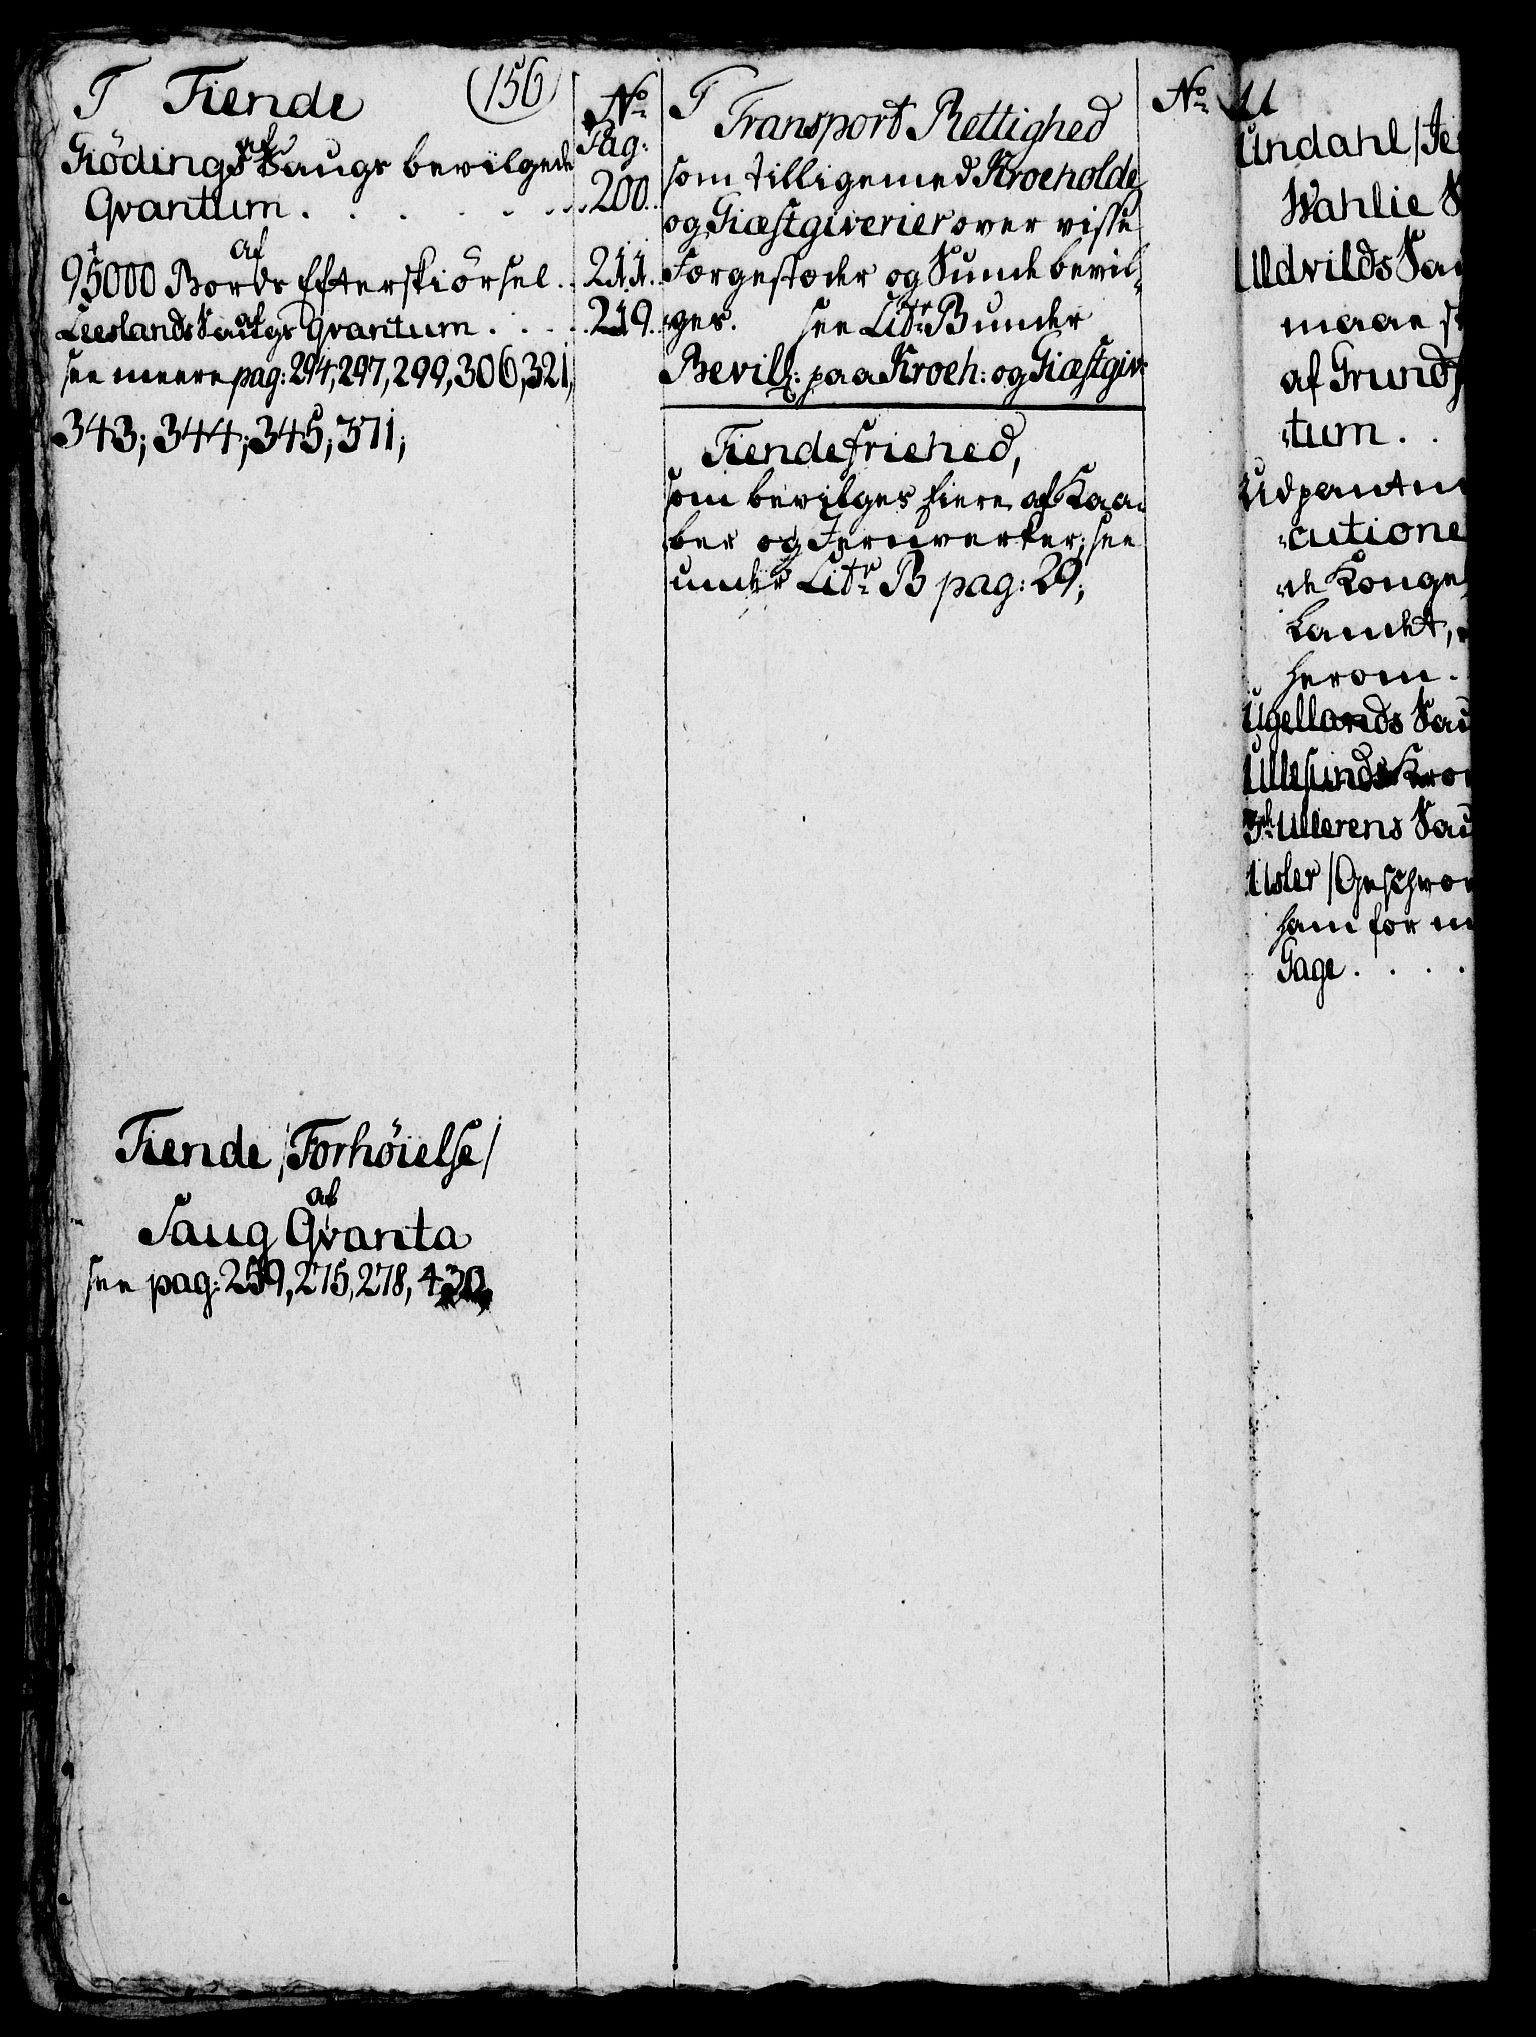 T Tiende (156)
No
Pag:
af
Giödings Saugs bevilgede
Qvantum . . . . . . 200.
af
95000 Bords Efterskiörsel . . 211.
af
Leeslands Saugs Qvantum . . . . 219.
see meere pag: 294, 297, 299, 306, 321,
343; 344; 345; 371;
Tiende /Forhöielse/
af
Saug Qvanta
see pag: 259, 275, 278, 430,
T No
Transport Rettighed
som tilligemed Kroeholde
og Giæstgiverier over visse
Færgestæder og Sunde bevil-
ges. see Litr B under
Bevill: paa Kroeh: og Giæstgiv:
Tiendefriehed,
som bevilges fiere af Kaa-
ber og Jernverker; see
under Litr B pag: 29;
U
Undahl /Je
Wahlie S
Udvilds Sau
maae
af Grund
tum . .
Udpantn
cutione
de Konge
Landet,
herom .
Ugellands Sau
Ullesunds Kro
Ullerens Sau
Usler /Geschwor
ham for
Gage . . . .